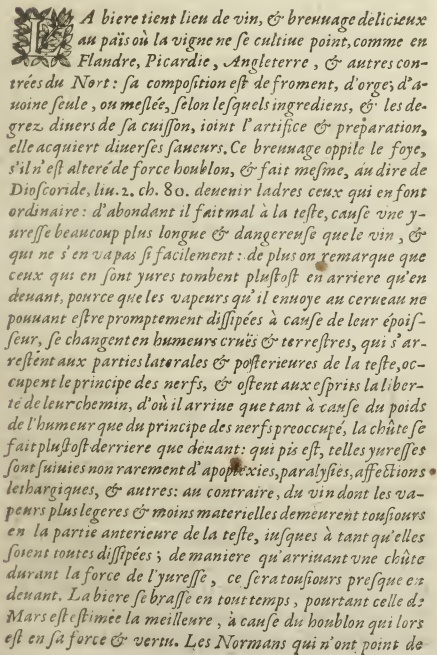 LA biere tient lieu de vin, & breuuage delicieux
au païs où la vigne ne se cultiue point, comme en
Flandre, Picardie, Angleterre, & autres con-
trées du Nort: sa composition est de froment, d'orge, d'a-
uoine seule, ou meslée, selon lesquels ingrediens, & les de-
grez diuers de sa cuisson, ioint l'artifice & preparation,
elle acquiert diuerses saueurs. Ce breuuage oppile le foye,
s'il n'est alteré de force houblon, & fait mesme, au dire de
Dioscoride, liu. 2. ch. 80. deuenir ladres ceux qui en font
ordinaire: d'abondant il fait mal à la teste, cause vne y-
uresse beaucoup plus longue & dangereuse que le vin, &
qui ne s'en va pas si facilement: de plus on remarque que
ceux qui en sont yures tombent plustost en arriere qu'en
deuant, pource que les vapeurs qu'il enuoye au cerueau ne
pouuant estre promptement dissipées à cause de leur époif-
seur, se changent en humeurs cruës & terrestres, qui s'ar-
restent aux parties laterales & posterieures de la teste, oc-
cupent le principe des nerfs, & ostent aux esprits la liber-
té de leur chemin, d'où il arriue que tant à cause du poids
de l'humeur que du principe des nerfs preoccupé, la chûte se
fait plustost derriere que deuant: qui pis est, telles yuresses
sont suiuies non rarement d'apoplexies, paralysies, affections
lethargiques, & autres: au contraire, du vin dont les va-
peurs plus legeres & moins materielles demeurent tousiours
en la partie anterieure de la teste, iusques à tant qu'elles
soient toutes dissipées; de maniere qu'arriuant vne chûte
durant la force de l'yuresse, ce sera tousiours presque en
deuant. La biere se brasse en tout temps, pourtant celle de
Mars est estimée la meilleure, à cause du houblon qui lors
est en sa force & vertu. Les Normans qui n'ont point de